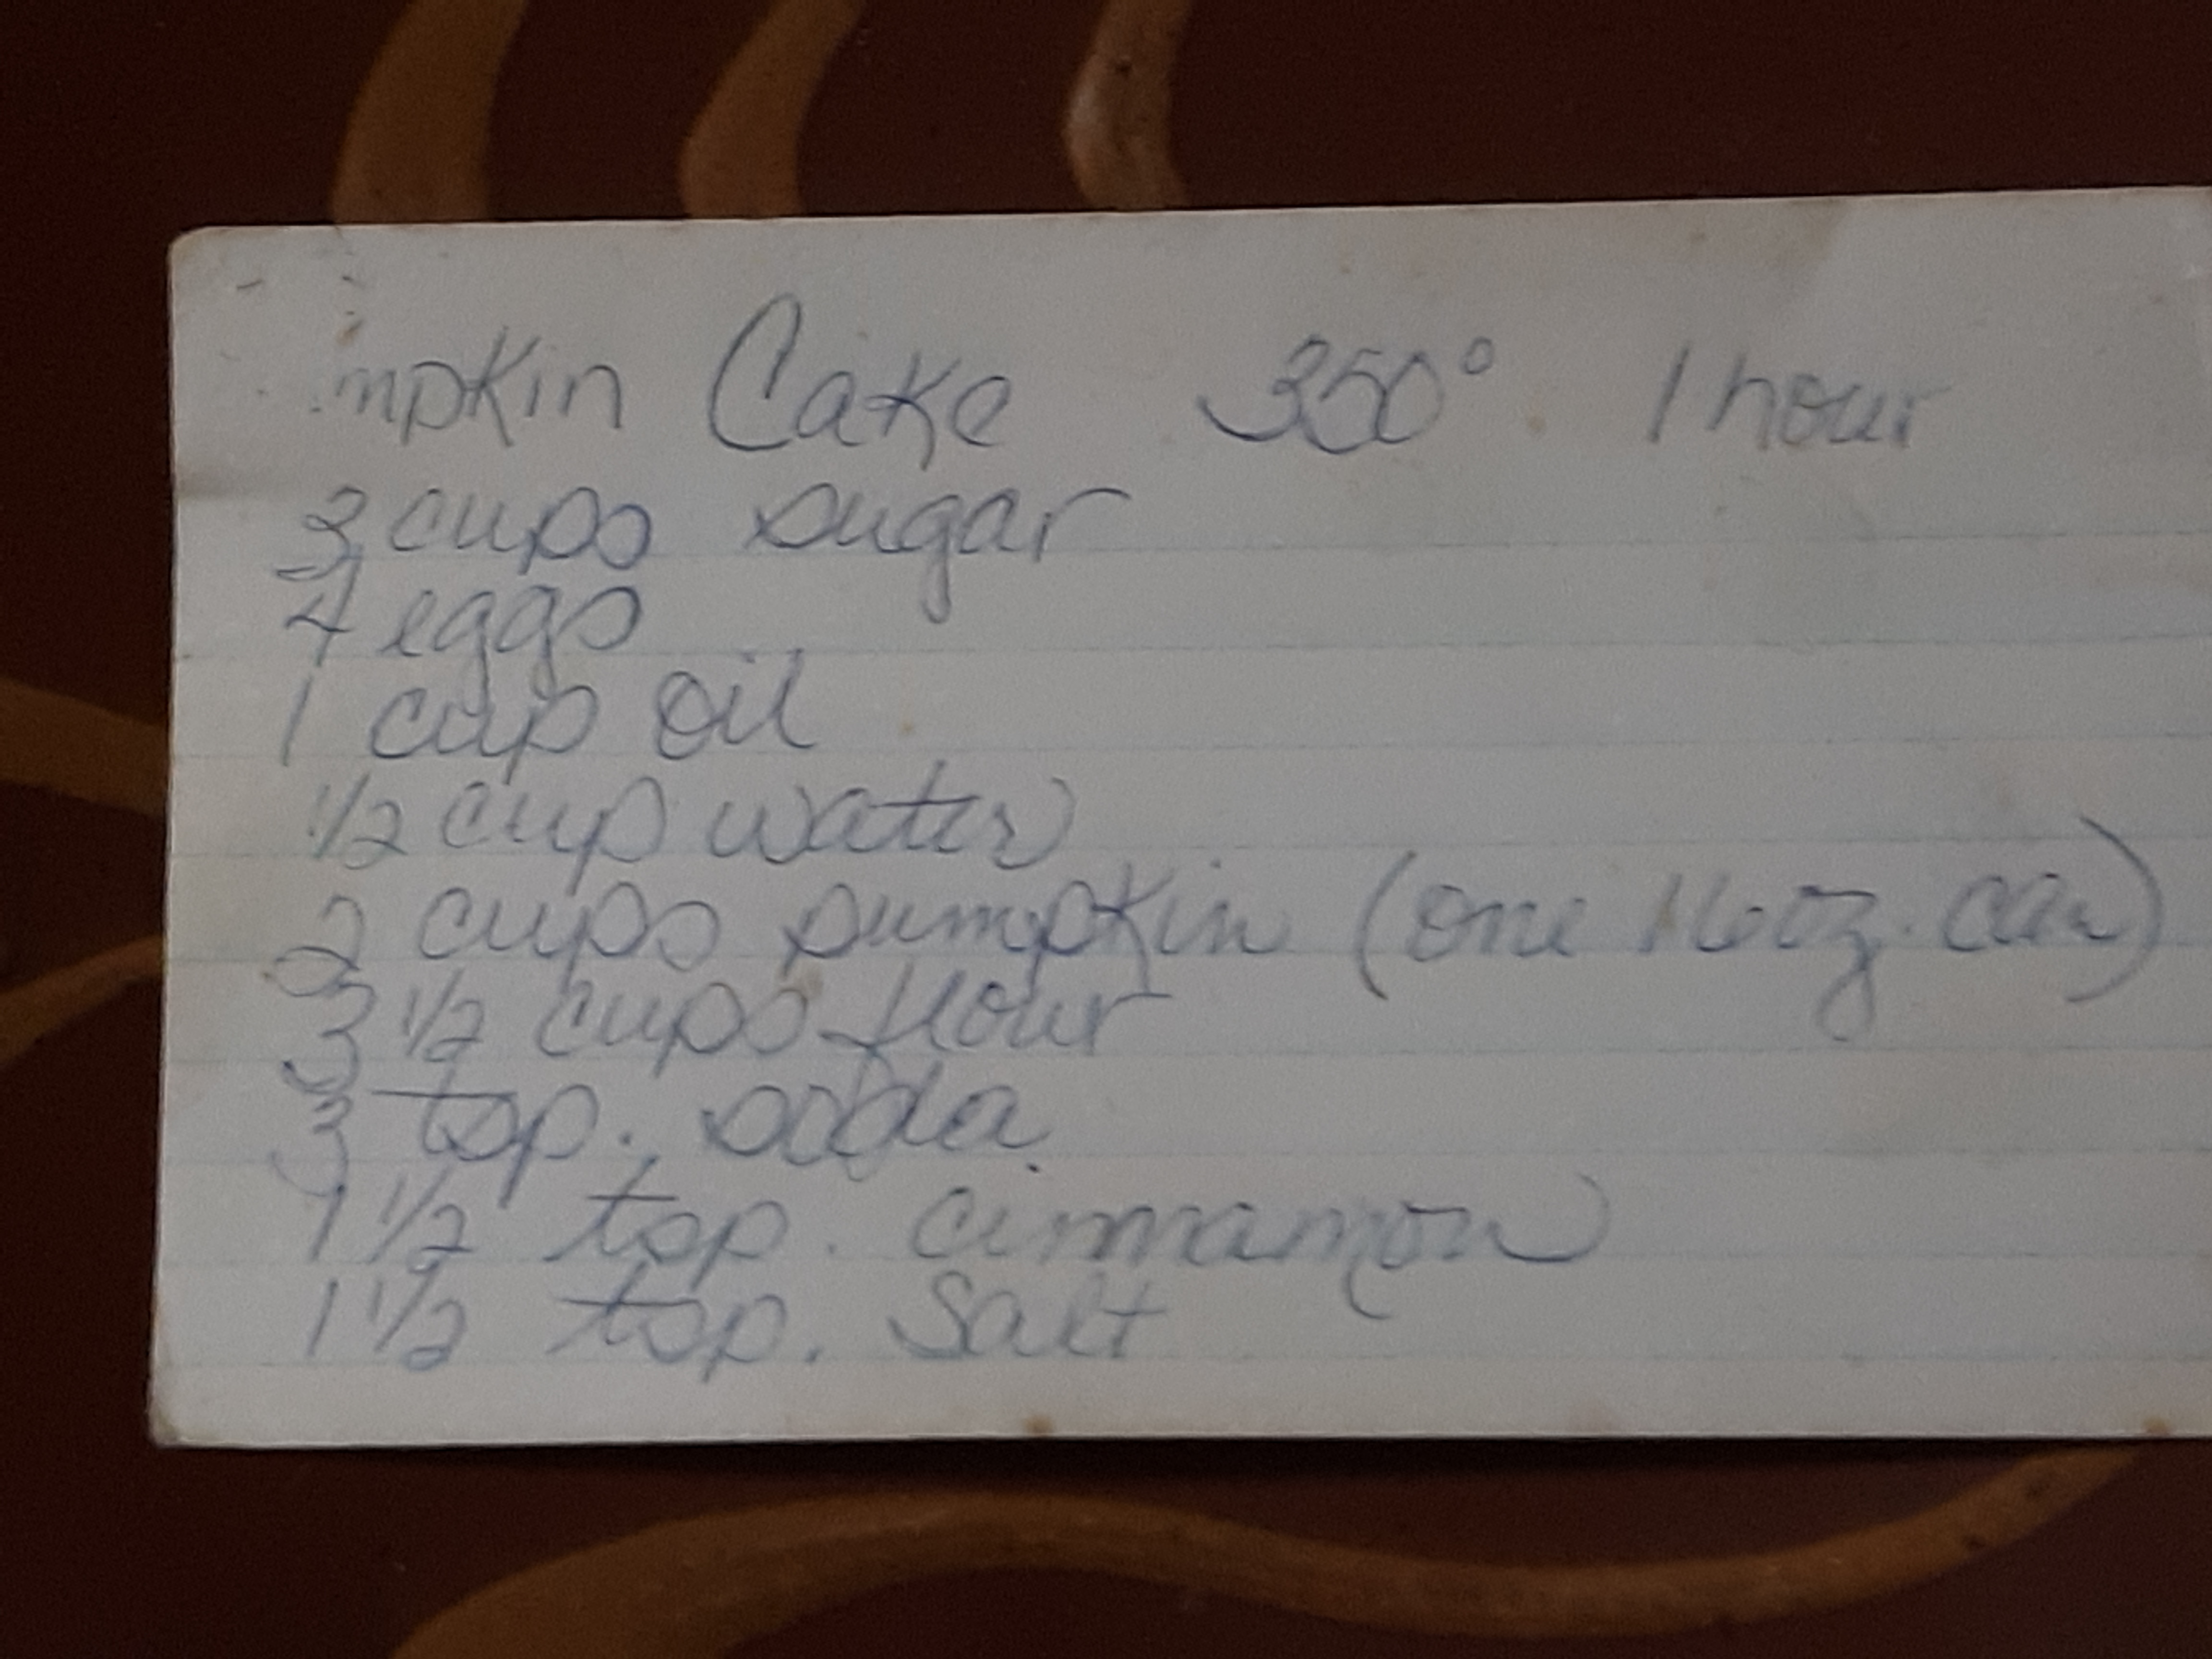 mpkin Cake 350° 1 hour
3 cups sugar
4 eggs
1 cup oil
1/2 cup water
2 cups pumpkin (one 16 oz. can)
3 1/2 cups flour
3 tsp. soda
1 1/2 tsp. cinnamon
1 1/2 tsp. Salt